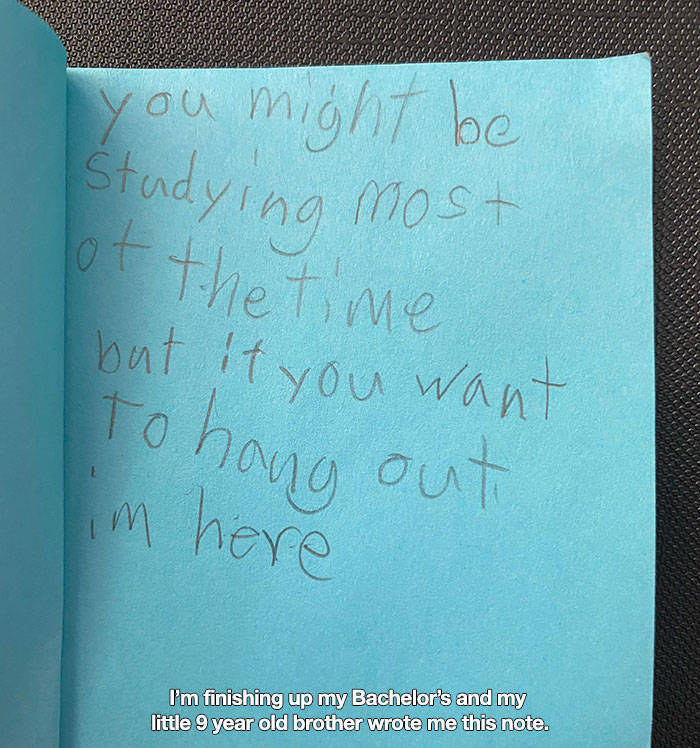 you might be
studying most
of the time
but if you want
to hang out
im here
I'm finishing up my Bachelor's and my
little 9 year old brother wrote me this note.